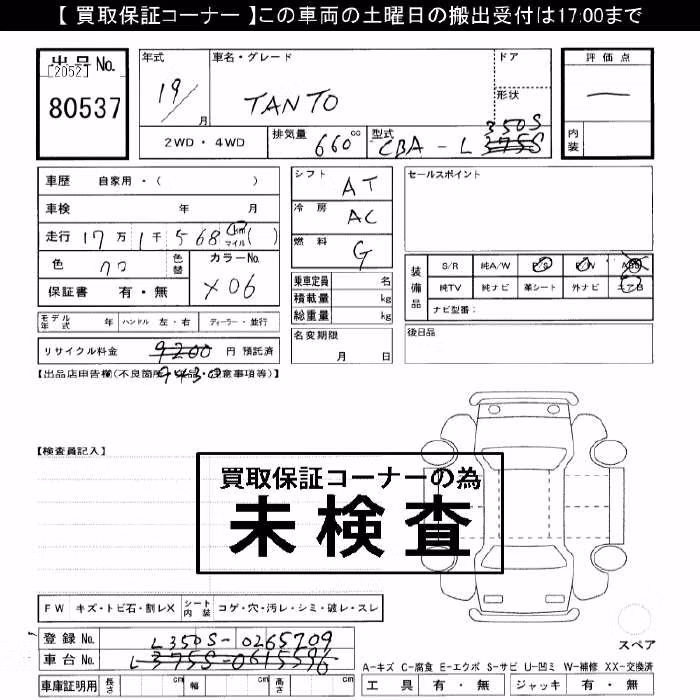 【 買取保証コーナー 】この車両の土曜日の搬出受付は17:00まで
出品 No.
[2052]
80537
年式
19/
月
車名・グレード
TANTO
ドア
形状
評価点
—
内装
2WD・4WD
排気量 660 cc
型式 CBA - L 350S
375S
車歴 自家用・( )
車検 年 月
走行 17万1千568 km マイル ( )
色 クロ
色替
カラーNo.
X06
保証書 有・無
モデル年式 年 ハンドル 左・右 ディーラー・並行
リサイクル料金 9200 円 預託済
9430
【出品店申告欄(不良箇所・欠品・注意事項等)】
シフト AT
冷房 AC
燃料 G
乗車定員 名
積載量 kg
総重量 kg
名変期限
月 日
セールスポイント
装備品
S/R 純A/W P/S P/W ABS
純TV 純ナビ 革シート 外ナビ エアB
ナビ型番:
後日品
【検査員記入】
買取保証コーナーの為
未検査
FW キズ・トビ石・割レX シート内装 コゲ・穴・汚レ・シミ・破レ・スレ
登録 No. L350S-0265709
車台 No. L375S-0615596
車庫証明用 長さ cm 幅 cm 高さ cm
スペア
A-キズ C-腐食 E-エクボ S-サビ U-凹ミ W-補修 XX-交換済
工具 有・無 ジャッキ 有・無